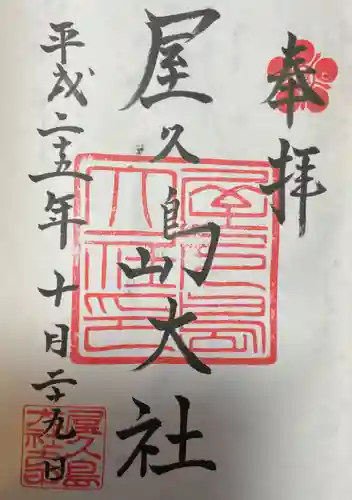 奉拝
屋久島大社
平成二十五年十月二十九日
屋久島大社印